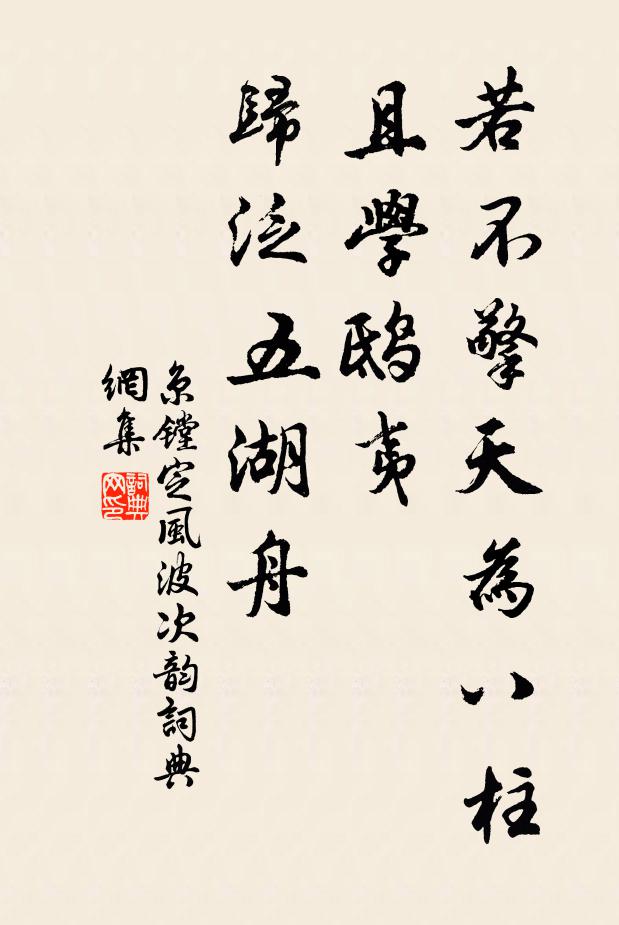 若不擎天為八柱
且學鴟夷
歸泛五湖舟
京鏜定風波次韵詞典
網集
詞典網印